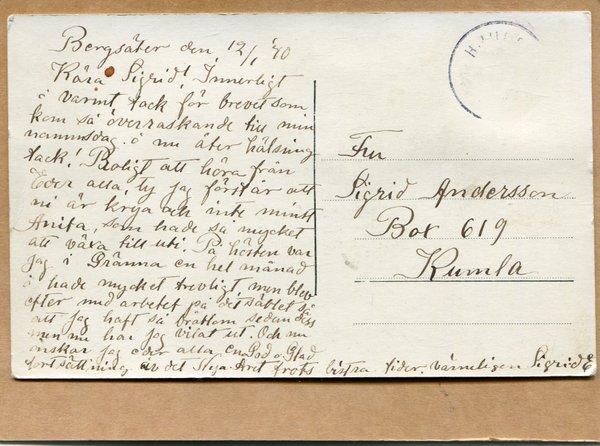 Bergsäter den 12/1 40
Kära Sigrid! Innerligt
o varmt tack för brevet som
kom så överraskande till min
namnsdag. o nu åter hälsning
tack! Roligt att höra från
Eder alla, ty jag förstår att
ni är krya och inte minst
Anita, som hade så mycket
att växa till uti. På hösten var
jag i Gränna en hel månad
o hade mycket trevligt, men blev
efter med arbetet på det sättet så
att jag haft så bråttom sedan dess
men nu har jag vilat ut. Och nu
önskar jag eder alla en God o Glad
fortsättning av det Nya Året trots bistra tider. värmeligen Sigrid E
H
Fru
Sigrid Andersson
Box 619
Kumla